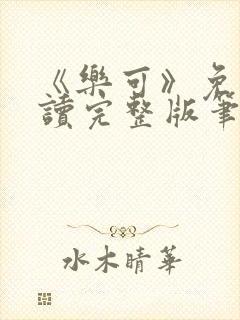 《樂可》免
讀完整版筆
水木晴華